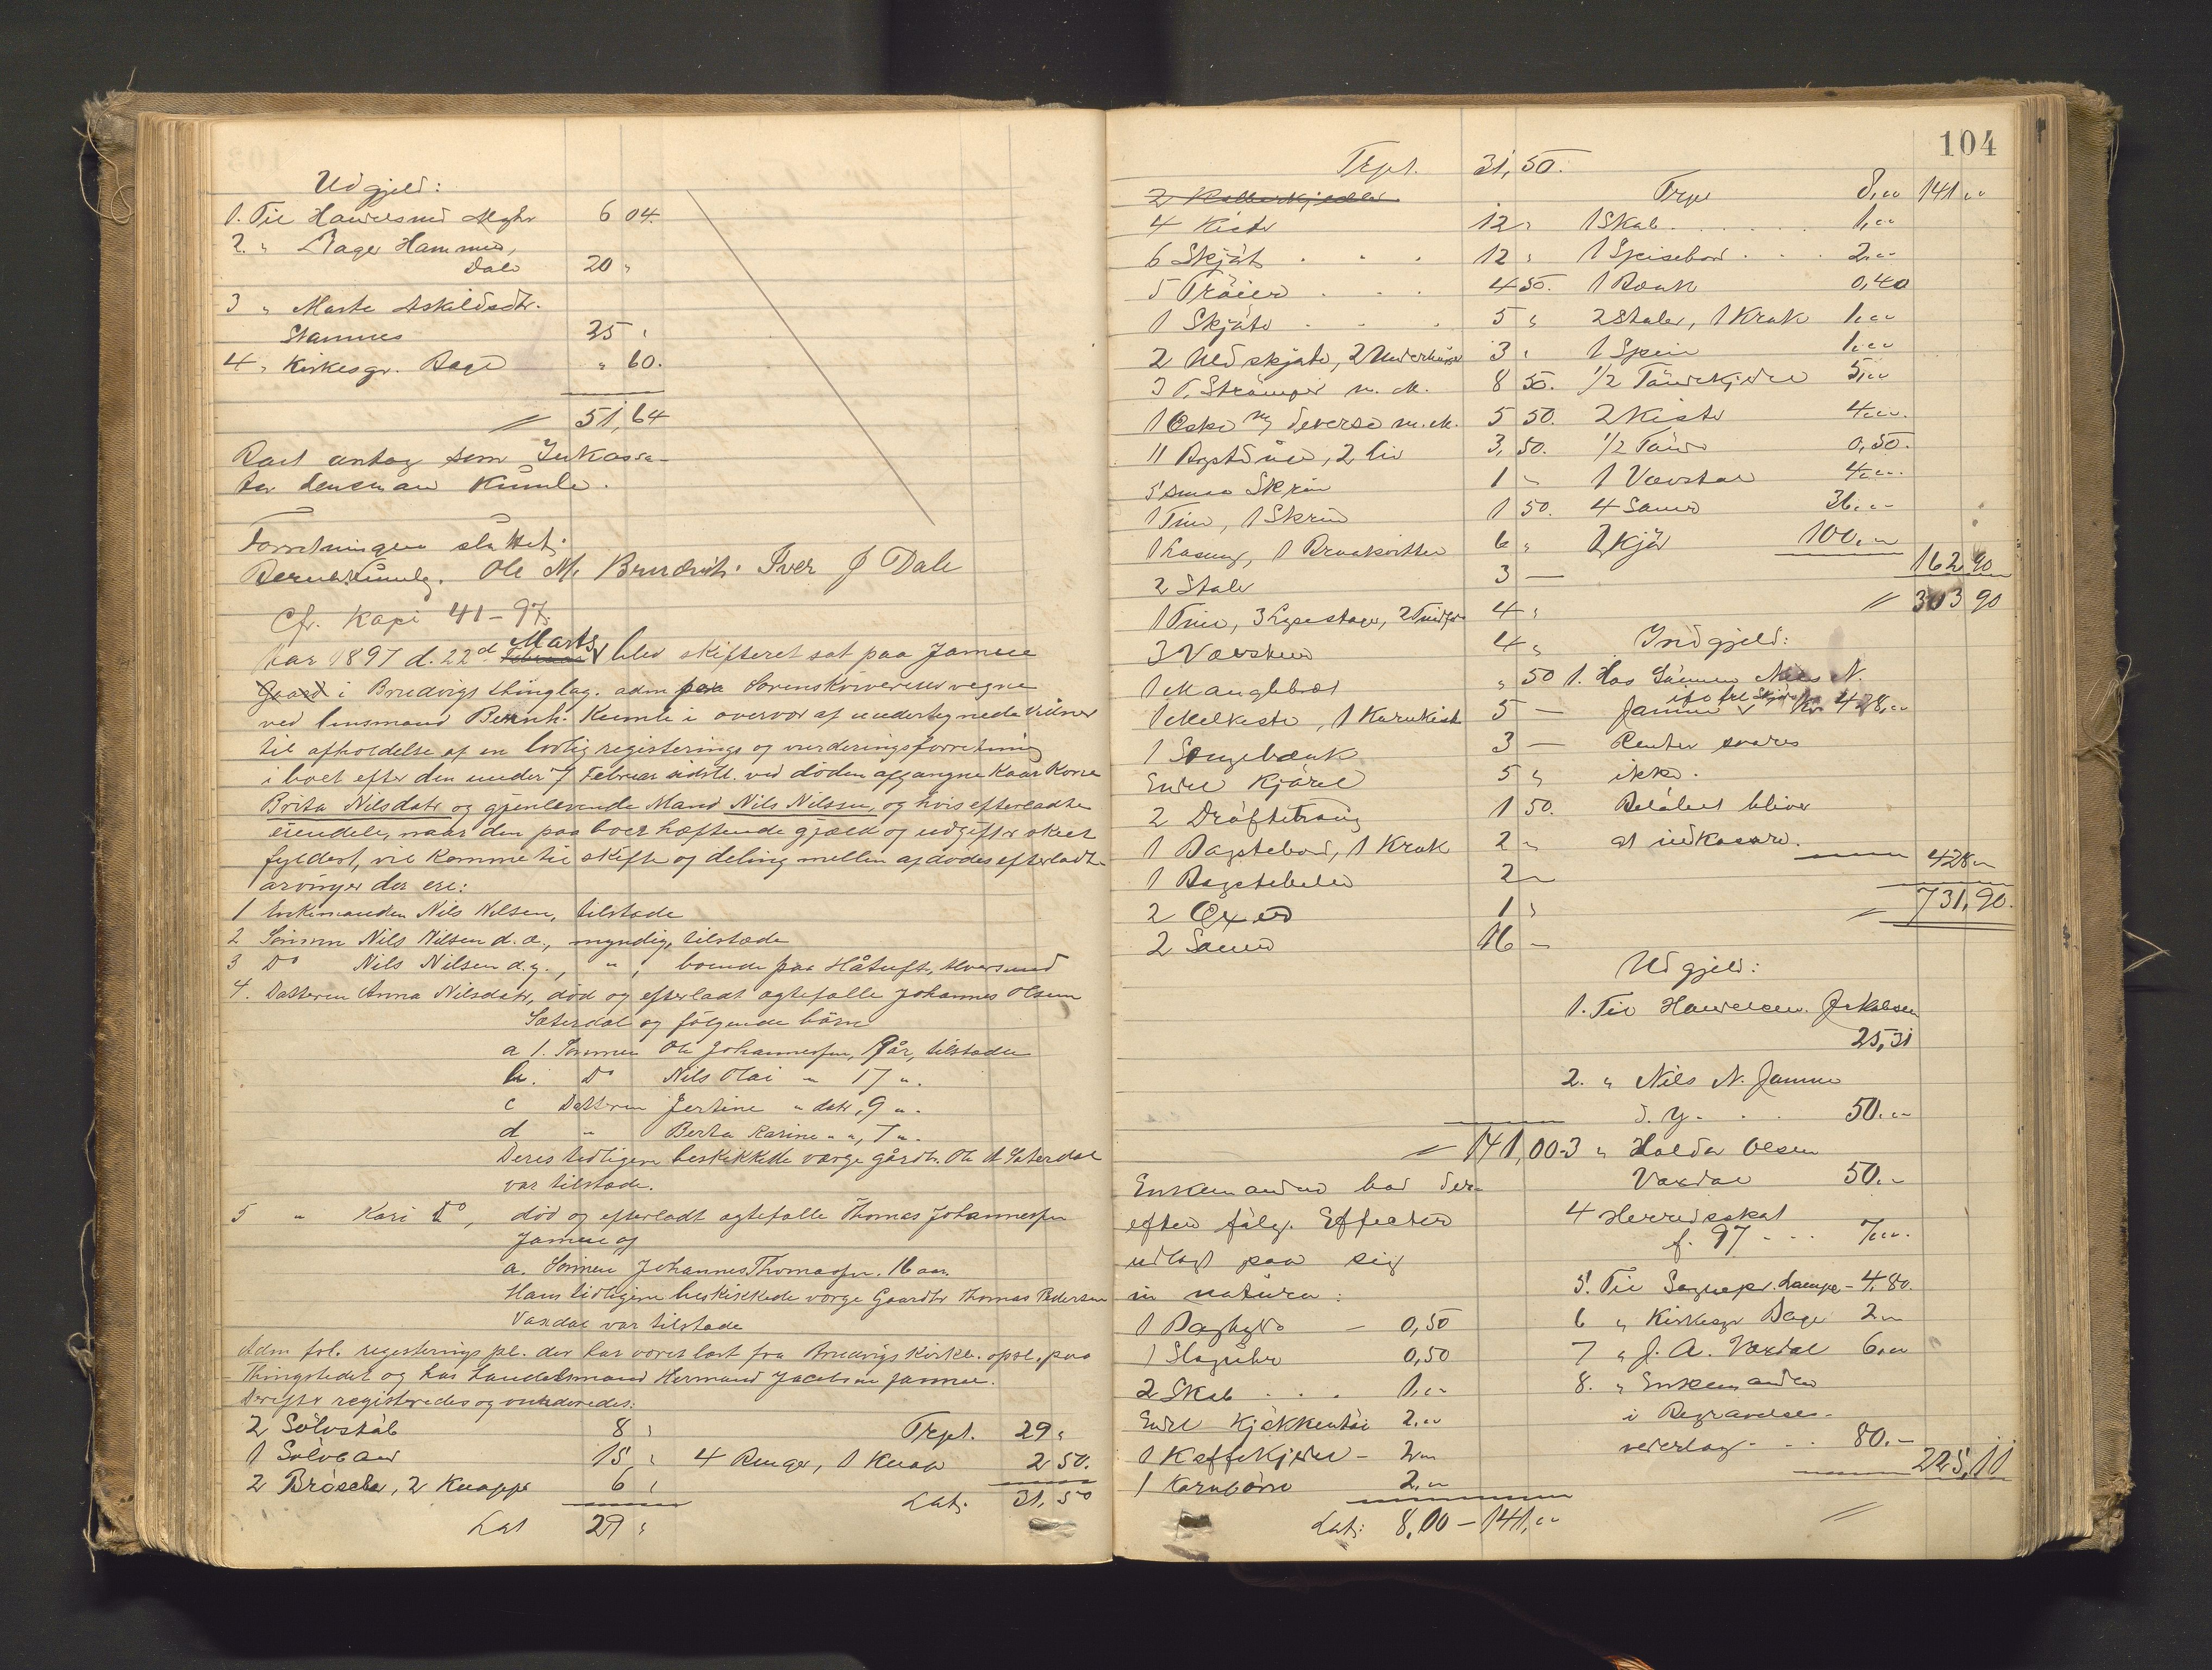 Udgjeld:
1. Til Handelsmd Myhr 6 04.
2. " Bager Hammer,
Dale 20 "
3 " Marta Askildsdtr.
Stamnes 25 "
4 " Kirkesgr. Dage " 60.
51,64
Boet antog som Inkassa-
tor lensmand Kumle.
Forretningen sluttet.
Bernh Kumle. Ole M. Brudvik. Iver J Dale
Cfr. Kopi 41-97.
Aar 1897 d. 22d Februar Marts blev skifteret sat paa Jamne
Gaard i Brudvigs thinglag. adm paa Sorenskriverens vegne
ved lensmand Bernh. Kumle i overvær af undertegnede Vidner
til afholdelse af en lovlig registerings og vurderingsforretning
i boet efter den under 7 Februar sidstl. ved døden afgangne Kaar Kone
Brita Nilsdatr og gjenlevende Mand Nils Nilsen, og hvis efterladte
eiendele, naar den paa boet hæftende gjæld og udgifter skeet
fyldest, vil komme til skifte og deling mellem afdødes efterladte
arvinger der ere:
1 Enkemanden Nils Nilsen, tilstede
2 Sønnen Nils Nilsen d. æ., myndig, tilstede
3 Do Nils Nilsen d.y., " , boende paa Håtuft, Alversund
4. Datteren Anna Nilsdatr, død og efterladt ægtefælle Johannes Olsen
Sæterdal og følgende børn
a 1. Sønnen Ole Johannessen, år, tilstede
b. Do Nils Olai " 17 ".
c Datteren Jertine " datr, 9 ".
d " Berta Karine " ", 7 ".
Deres tidligere beskikkede værge gårdbr. Ole A Sæterdal
var tilstede.
5 " Kari Do, død og efterladt ægtefælle Thomas Johannessen
Jamne og
a. Sønnen Johannes Thomassen. 16 aar.
Hans tidligere beskikkede værge Gaardbr Thomas Pedersen
Vaxdal var tilstede
Adm frl. registerings pl. der har været læst fra Brudvigs Kirke. opsl. paa
Thingstedet og hos Handelsmand Hermund Jacobsen Jamne.
Derefter registeredes og vurderedes:
2 Sølvstøb 8 " Trpt. 29 "
1 Sølvband 15 " 4 Ringer, 1 Knap 2 50.
2 Brøscher, 2 Knapper 6 " Lat. 31,50
Lat 29 "
104
Trpt. 31,50.
2 Kobberkjedler
4 Kister 12 "
6 Skjøt 12 "
5 Trøier 4 50.
1 Skjøte 5 "
2 Uldskjøte, 2 3 "
3 P. Strømper m. M. 8 50.
1 Eske m/ deverse m. M. 5 50.
11 , 2 Liv 3,50.
5 smaa Skrin 1 "
1 Tine, 1 Skrin 1 50.
1 , 1 6 "
2 Stoler 3 —
1 Tine, 3 Lysestager, 2 4 "
3 4 "
1 Manglebræt " 50
1 Melkiste, 1 Kornkiste 5 —
1 Sengebænk 3 —
Endel Kjørel 5 "
2 Drøftetraug 1 50.
1 Bagstebord, 1 Krak 2 "
1 Bagstehelle 2 "
2 Øxer 1 "
2 Sauer 16 —
141,00
Enkemanden bad der-
efter følg. Effecter
udlagt paa sig
in natura:
1 — 0,50
1 Slaguhr 0,50
2 Skab 1,00
Endel Kjøkkentøi 2,00
1 Kaffekjedel - 2,00
1 Kornbørre 2,00
Lat: 8,00 - 141,00
Trpt 8,00 141,00
1 Skab 1,00
1 Spisebord 2,00
1 Bænk 0,40
2 Stoler, 1 Krak 1,00
1 Spein 1,00
1/2 Tøndekjedel 5,00
2 Kister 4,00.
1/2 Tønde 0,50.
1 Vævstol 4,00.
4 Sauer 36,00
2 Kjør 100,00
162 90
303 90
Indgjeld:
1. Hos Sønnen Nils N.
Jamne Kr. 428,00
Renter svares
ikke.
Beløbet bliver
at indkasere.
428,00
731,90.
Udgjeld:
1. Til Handelsm. Jakobsen
25,31
2. " Nils N. Jamne
d. y. 50,00
3 " Haldor Olsen
Vaxdal 50,00
4 Herredsskat
f. 97 7,00.
5. Til Sognepr. Lampe - 4,80.
6 " Kirkesgr Dage 2,00
7 " J. A. Vaxdal 6,00
8. " Enkemanden
i Begravelses-
vederlag 80.—
225,11